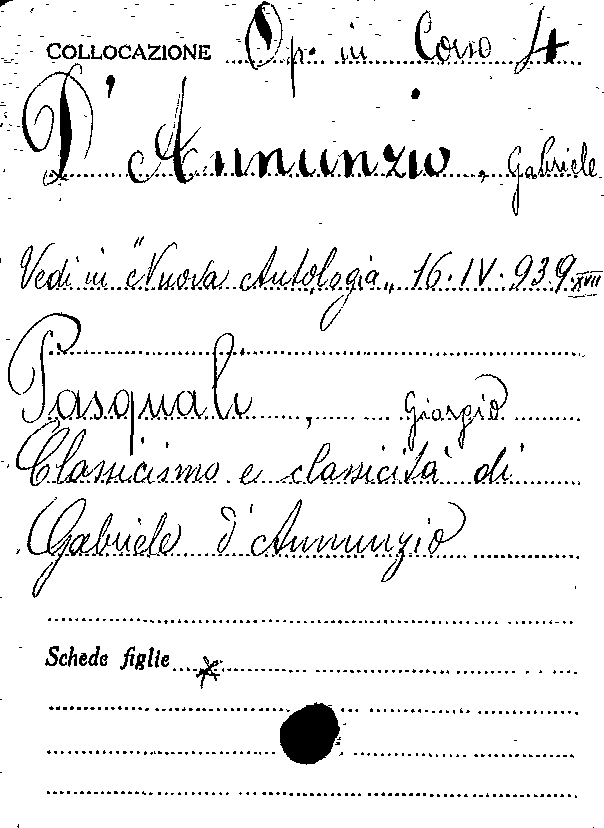 COLLOCAZIONE Op. in Corso 4
D'Annunzio, Gabriele
Vedi in "Nuova Antologia" 16.IV.939.XVII
Pasquali, Giorgio
Classicismo e classicità di
Gabriele d'Annunzio
Schede figlie *